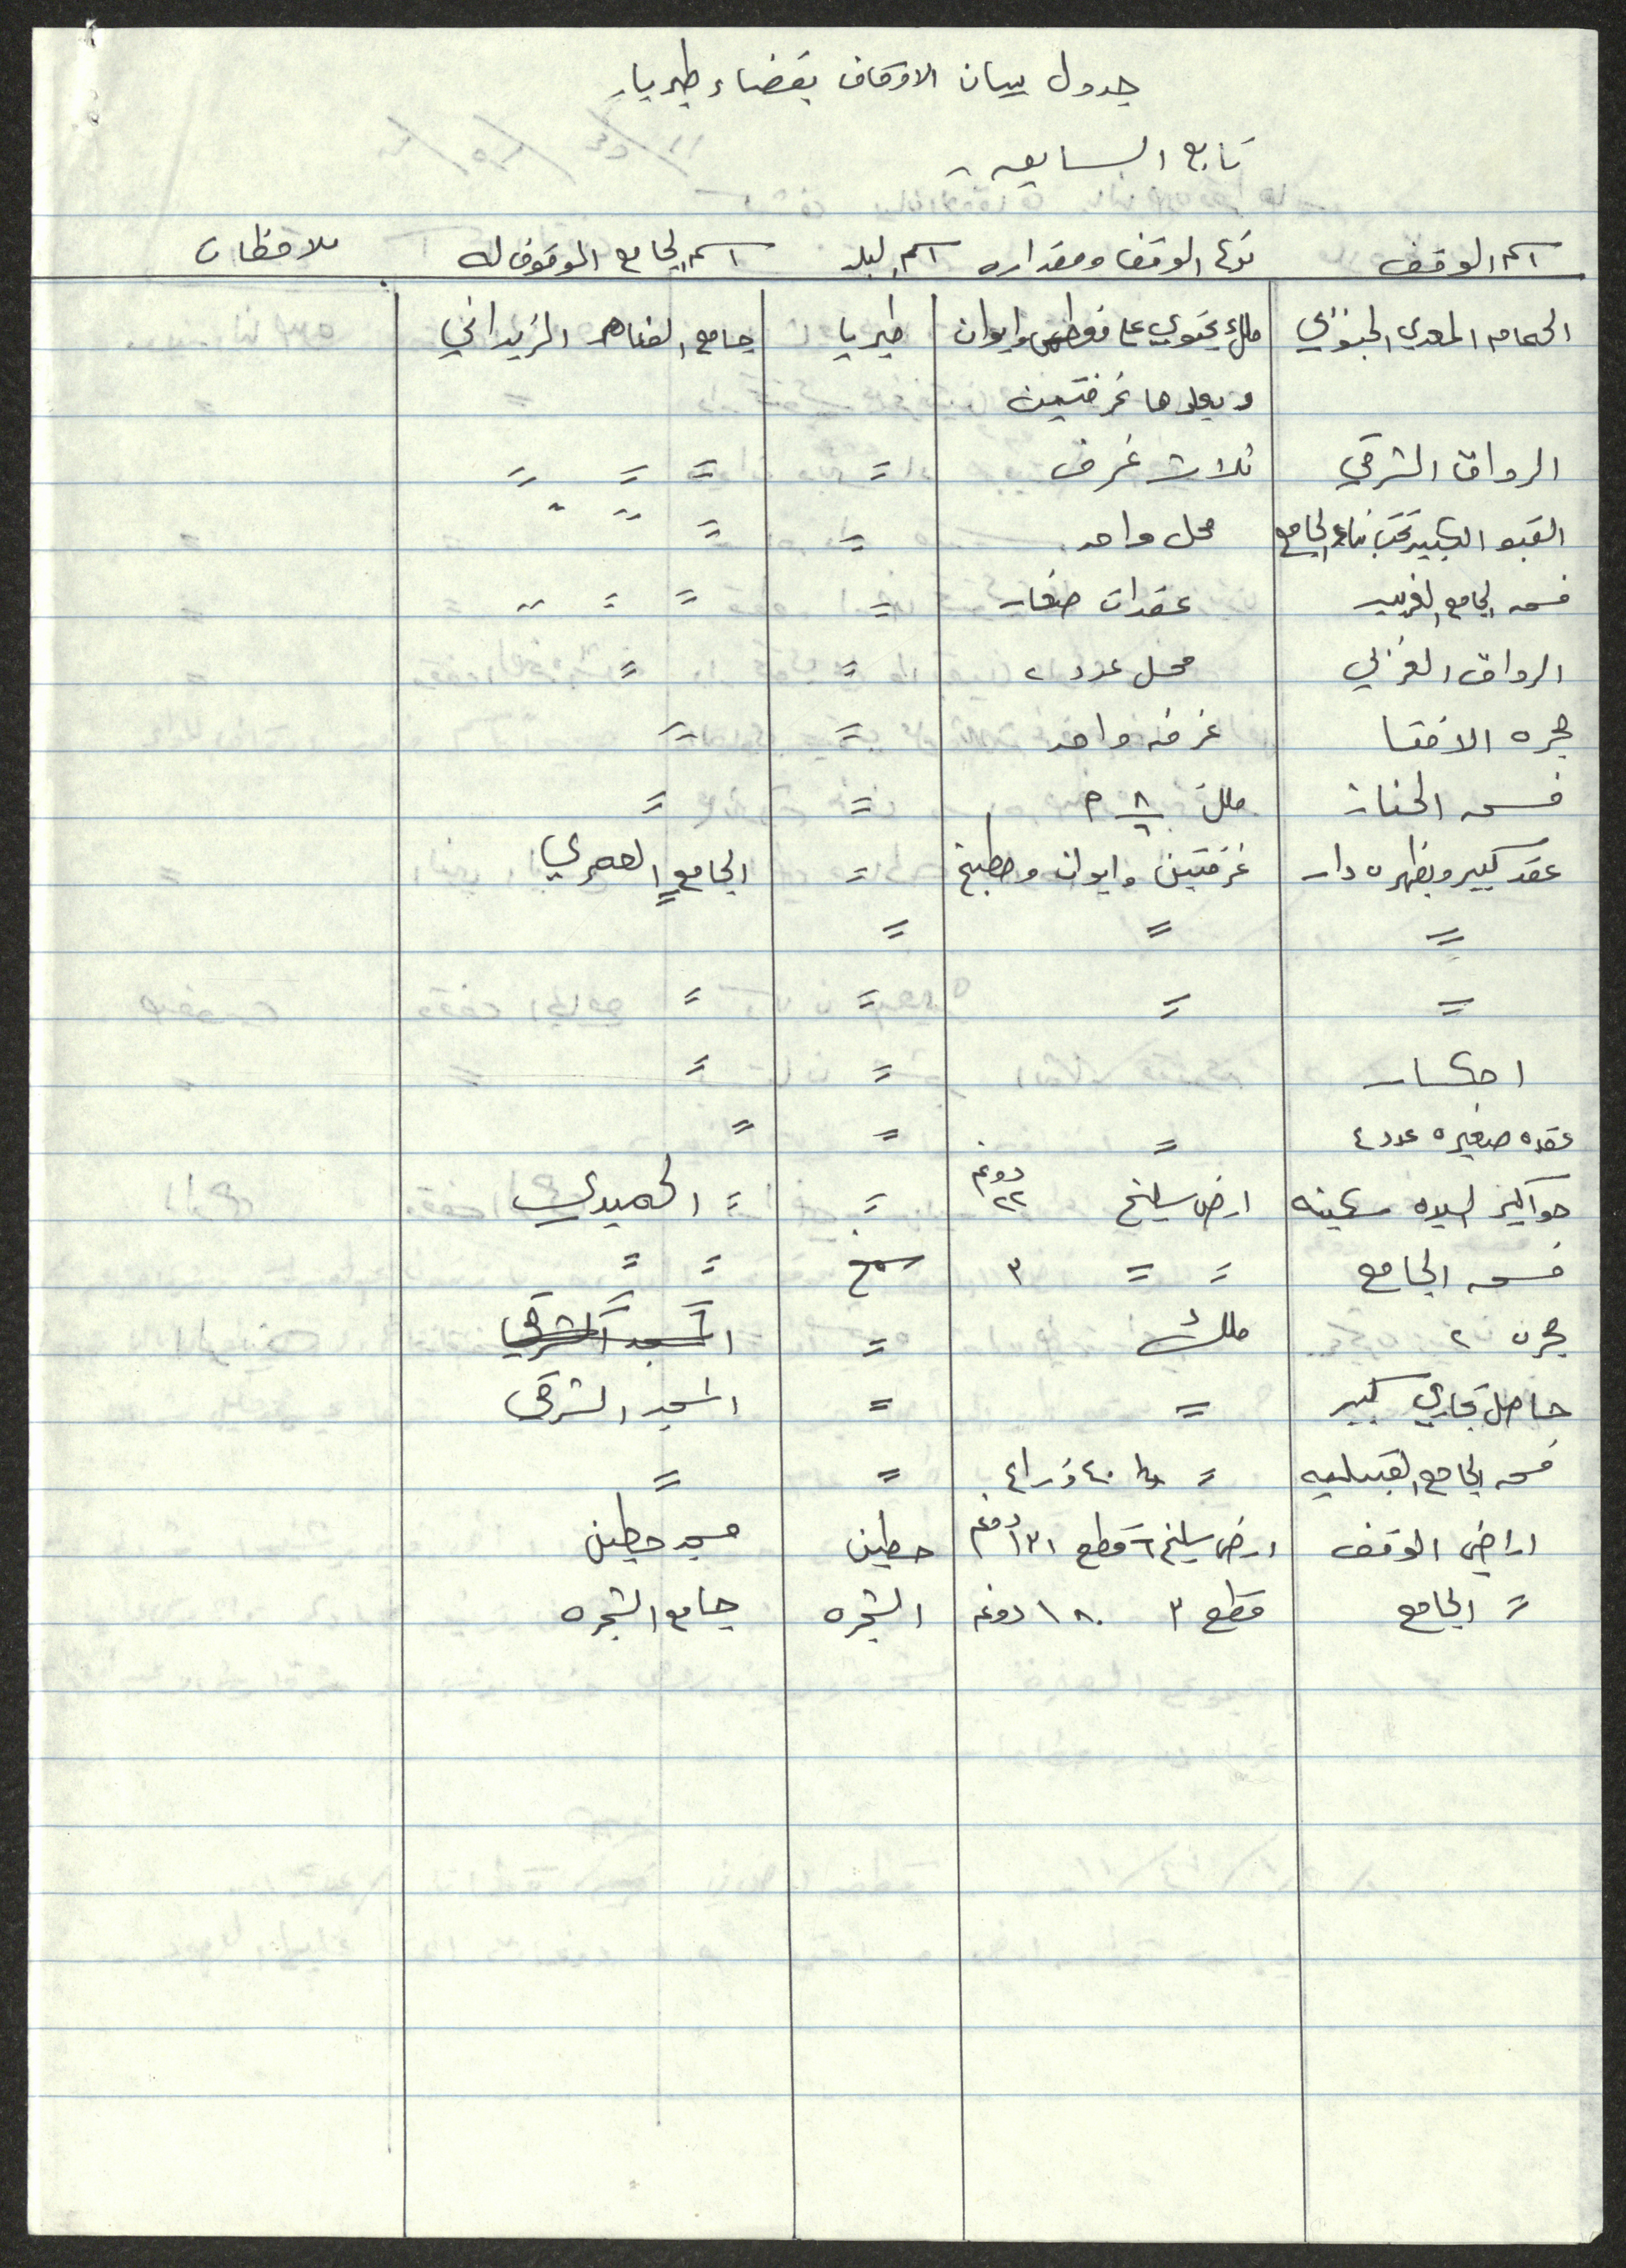 جدول بيان الاوقاف بقضاء طبريا
تابع السابعه
اسم الوقف نوع الوقف ومقداره اسم البلد اسم الجامع الموقوف له ملاحظات
الحمام المعدني ملك يحتوي على وايوان طبريا جامع الزيداني
ويعلوها غرفتين
الرواق الشرقي ثلاث غرف = = = =
القبو الكبير تحت بناء الجامع محل واحد = =
فسحه الجامع الغربيه عقدات صغار = = =
الرواق الغربي محل عدد ٢ = =
حجره الافتا غرفه واحد = =
فسحه ملك ٨ م = =
عقد كبير وبظهره دار غرفتين وايوان ومطبخ = الجامع العمري
= = =
= = = =
احكار = =
عقده صغيره عدد ٤ = = =
حواكير السيده سكينه ارض سليخ ٢٢ دونم = = الحميدي
فسحه الجامع = = ٣ سمخ = =
حجرن ٢ ملك = المسجد الشرقي
حاصل تجاري كبير = = المسجد الشرقي
فسحه الجامع القبيليه = ٤٠ ذراع = =
اراضي الوقف ارض سليخ ٦ قطع ١٣١ دونم حطين مسجد حطين
= الجامع قطع ٣ ١٨٠ دونم الشجره جامع الشجره